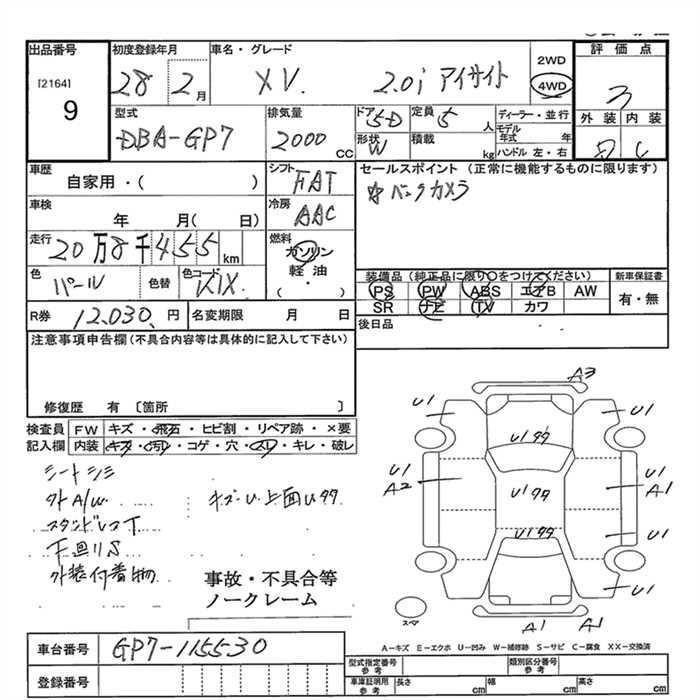 出品番号 初度登録年月 車名・グレード 2WD 評価点
[2164] 28 2月 XV. 2.0i アイサイト 4WD 3
9
型式 排気量 ドア 5D 定員 5人 ディーラー・並行 外装 内装
DBA-GP7 2000cc 形状 W 積載 kg モデル年式 年 C
ハンドル 左・右
車歴 シフト FAT セールスポイント (正常に機能するものに限ります)
自家用・( ) バックカメラ
車検 年 月( 日) 冷房 AAC
走行 20万8千455km 燃料 ガソリン 軽油 ( ・ )
色 パール 色替 色コード K1X 装備品(純正品に限り○をつけてください) 新車保証書
PS PW ABS エアB AW 有・無
SR ナビ TV カワ
R券 12,030円 名変期限 月 日 後日品
注意事項申告欄(不具合内容等は具体的に記入して下さい)
修復歴 有 〔箇所 〕
検査員記入欄 FW キズ・飛石・ヒビ割・リペア跡・×要
内装 キズ・汚レ・コゲ・穴・スレ・キレ・破レ
シートシミ
外A/W キズ・U 上面Uササ
スタンドレスT
下回りS
外装付着物
事故・不具合等
ノークレーム
A3
U1 U1
Uササ
U1 U1
A2 U1ササ A1
U1ササ U1
U1
スペア A1 A1
A-キズ E-エクボ U-凹み W-補修跡 S-サビ C-腐食 XX-交換済
車台番号 GP7-115530
登録番号
型式指定番号 参考 類別区分番号 参考
車庫証明用 参考 長さ cm 幅 cm 高さ cm